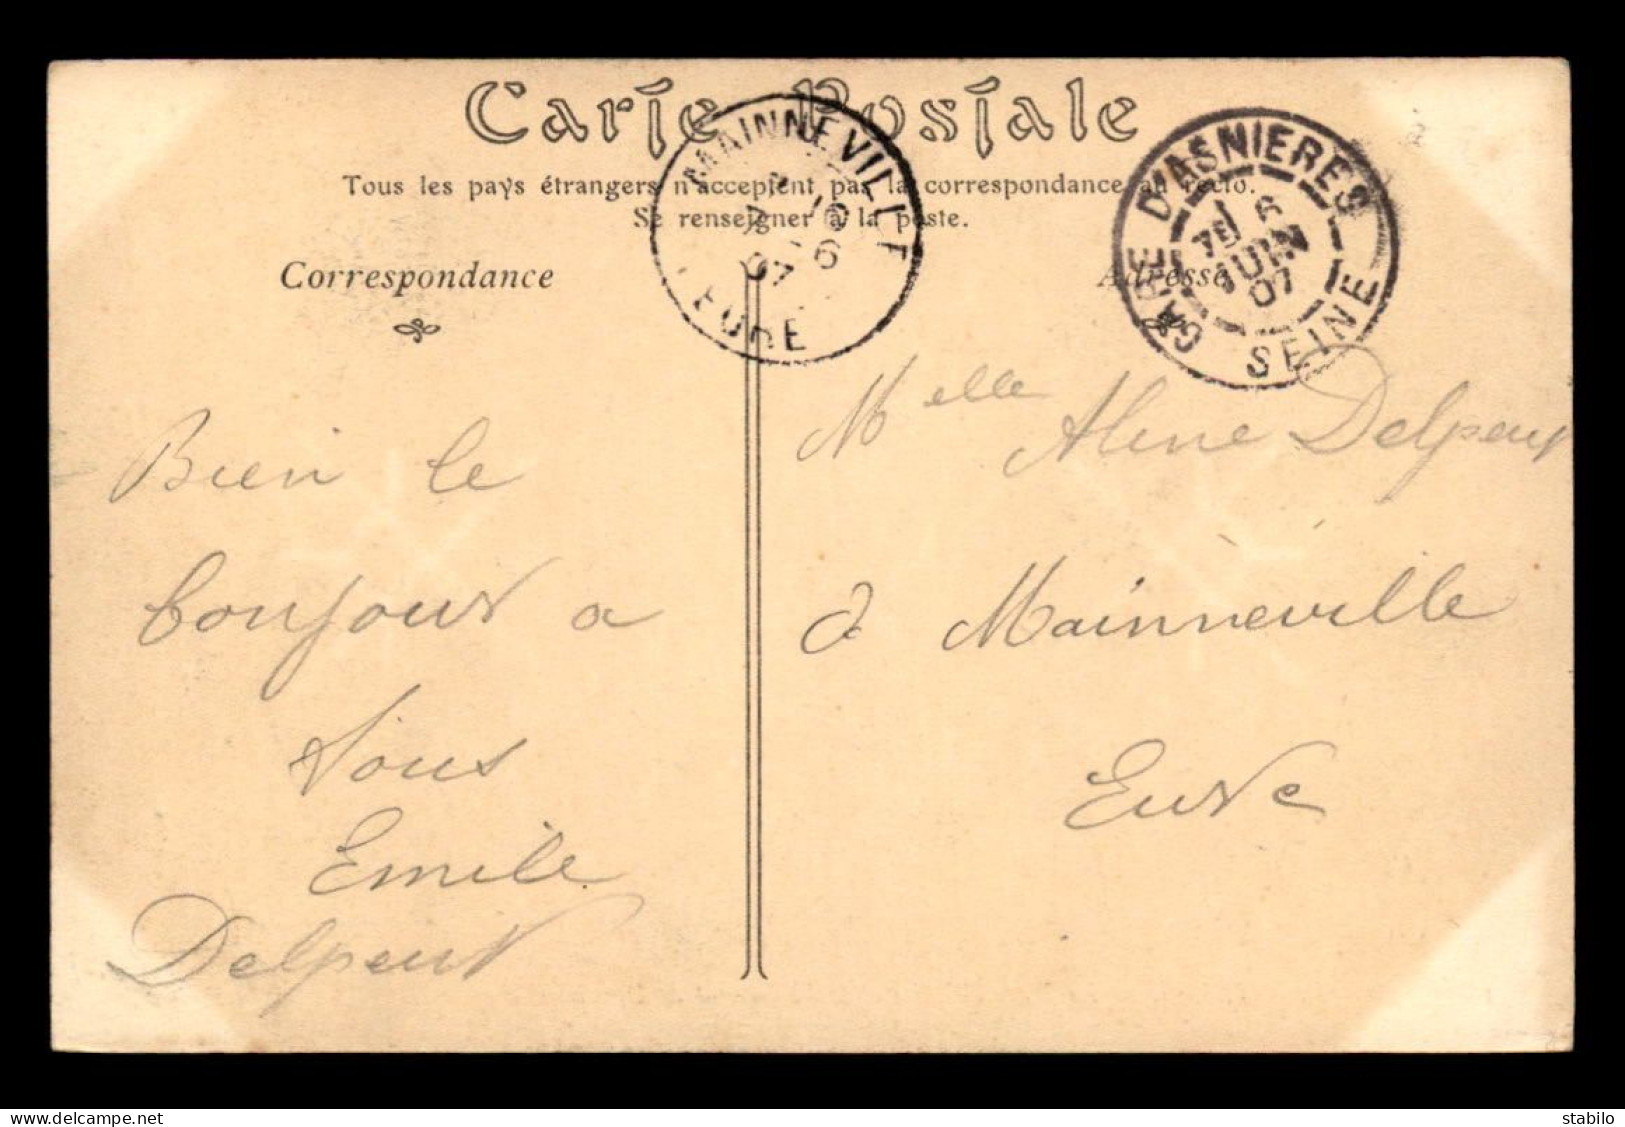 Carte Postale
Tous les pays étrangers n'acceptent pas la correspondance au recto.
Se renseigner à la poste.
Correspondance
Adresse
MAINNEVILLE
EURE
07 6
GARE D'ASNIERES
6
JUIN
07
SEINE
Bien le
bonjour a
tous
Emile
Delpeut
Melle Aline Delpeut
à Mainneville
Eure
delcampe.net
stabilo